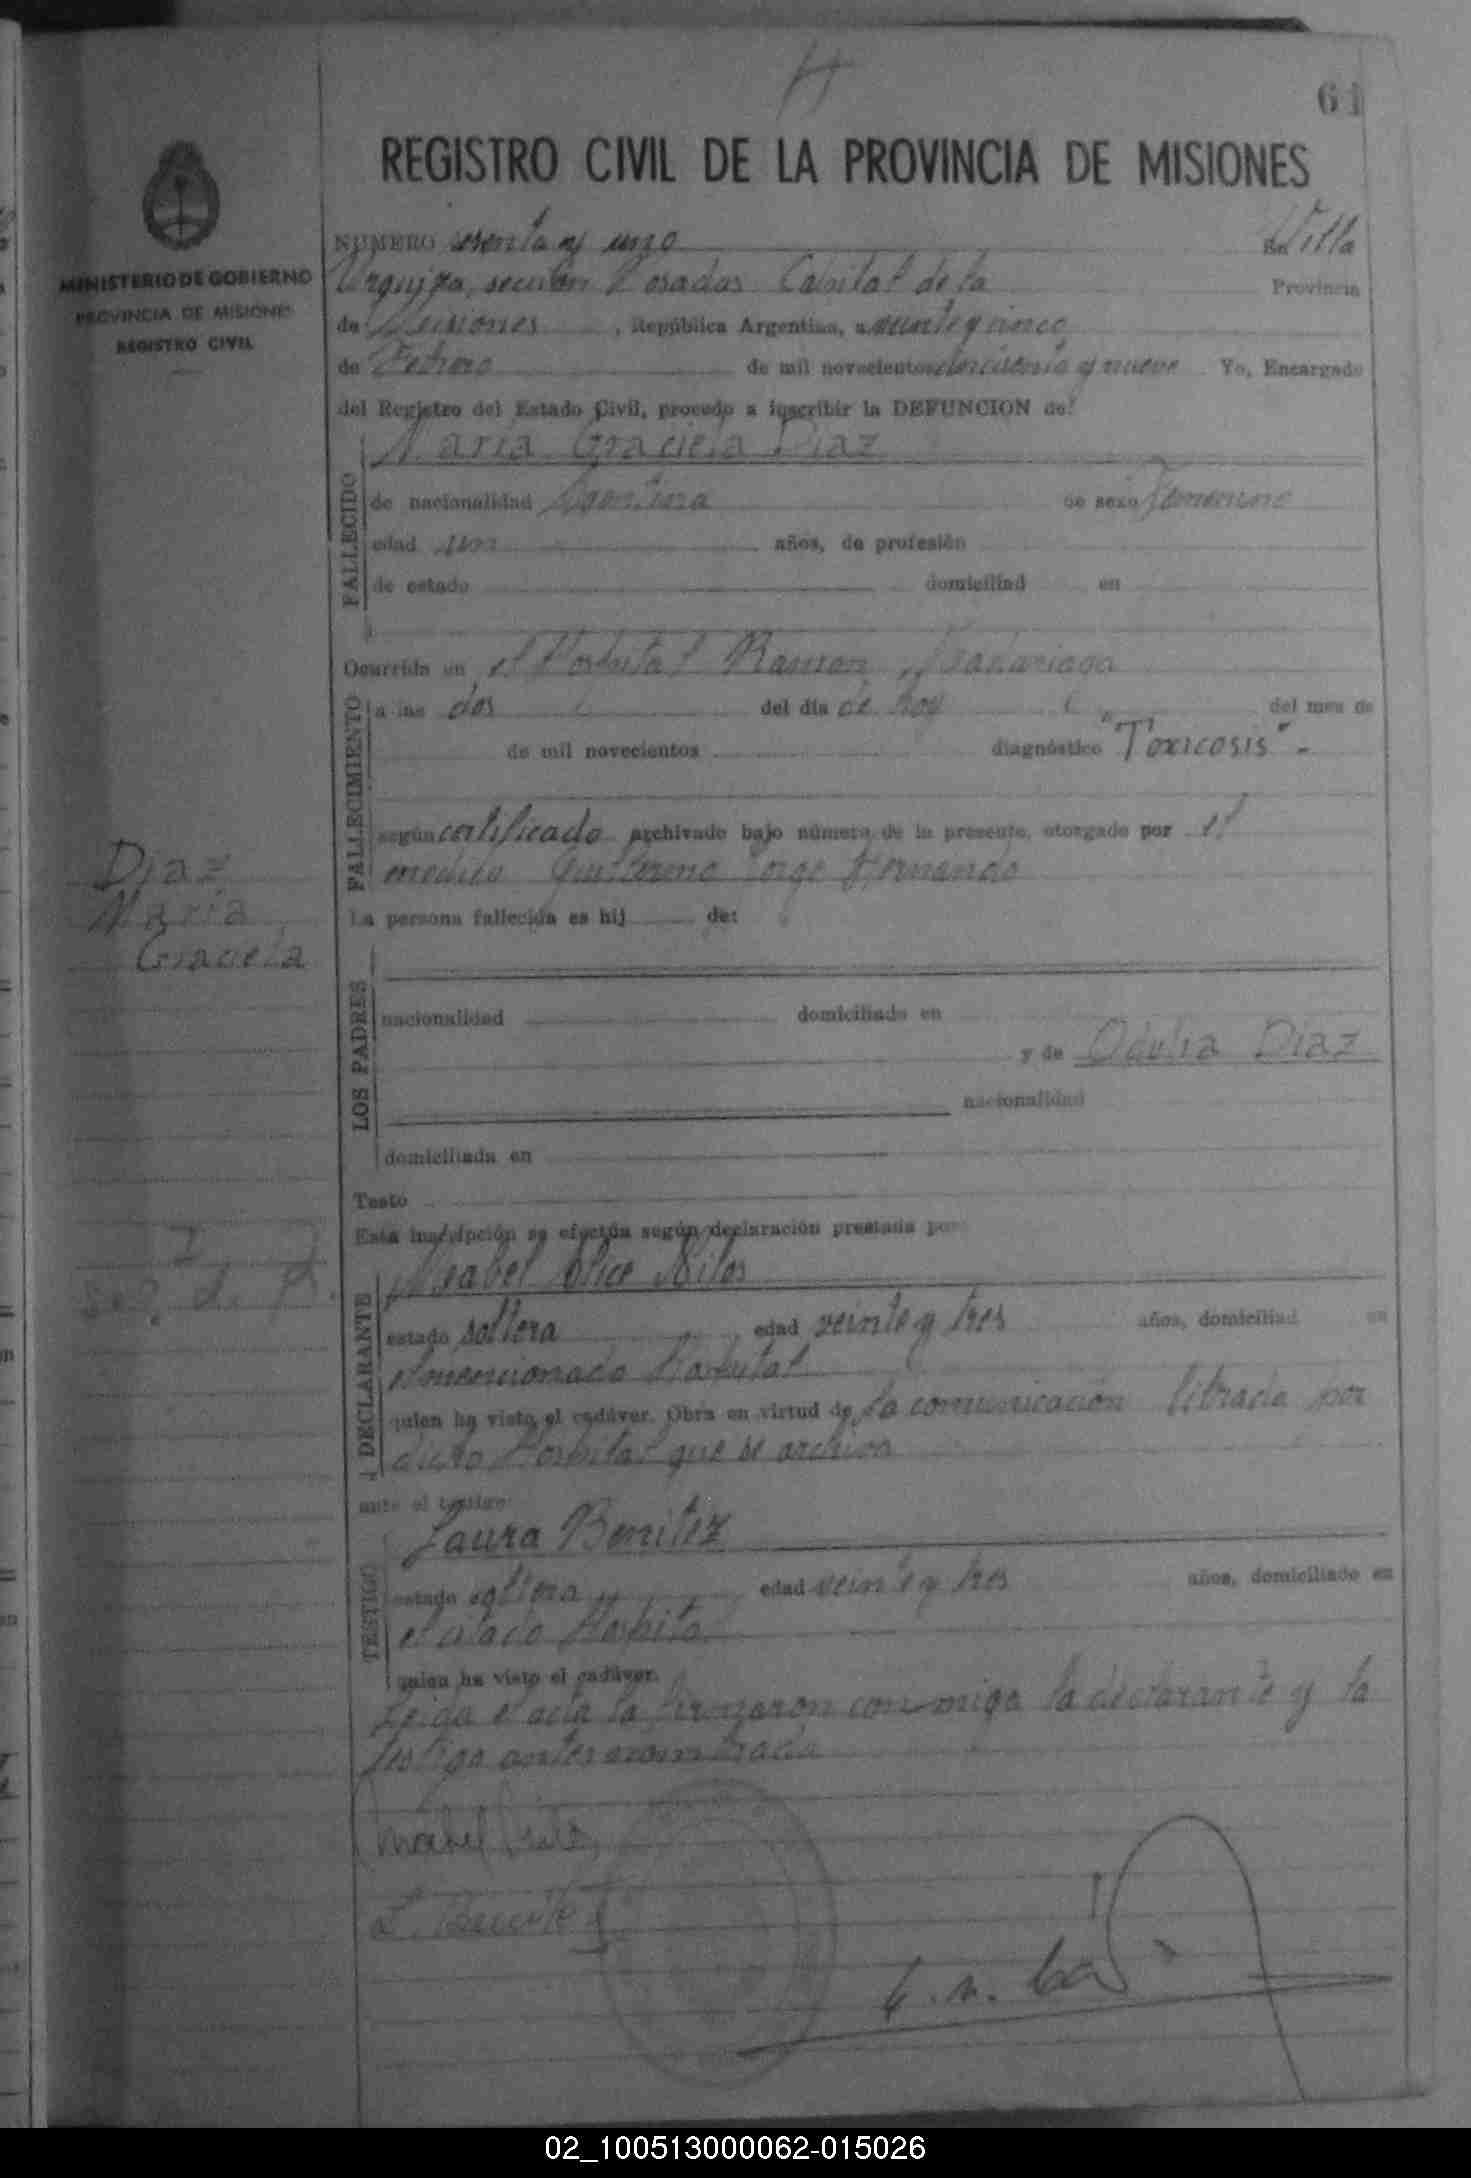 H
61
REGISTRO CIVIL DE LA PROVINCIA DE MISIONES
MINISTERIO DE GOBIERNO
PROVINCIA DE MISIONES
REGISTRO CIVIL
NUMERO sesenta y uno En Villa
Urquiza, sección Posadas Capital de la Provincia
de Misiones, República Argentina, a veinte y cinco
de Febrero de mil novecientos cincuenta y nueve Yo, Encargado
del Registro del Estado Civil, procedo a inscribir la DEFUNCION de:
Maria Graciela Diaz
FALLECIDO
de nacionalidad de sexo Femenino
edad años, de profesión
de estado domiciliad en
Ocurrida en el Hospital Ramon Madariaga
FALLECIMIENTO
a las dos del día de hoy del mes de
de mil novecientos diagnóstico "Toxicosis".-
según certificado archivado bajo número de la presente, otorgado por el
medico Guillermo Jorge Hernando
La persona fallecida es hij de:
Diaz
Maria
Graciela
LOS PADRES
nacionalidad domiciliado en
y de Odulia Diaz
nacionalidad
domiciliada en
Testó
Esta inscripción se efectúa según declaración prestada por:
DECLARANTE
estado soltera edad veinte y tres años, domiciliad en
el mencionado Hospital
quien ha visto el cadáver. Obra en virtud de la comunicación librada por
dicho Hospital que se archiva
ante el testigo
Laura Benitez
TESTIGO
estado soltera edad veinte y tres años, domiciliado en
el citado Hospital
quien ha visto el cadáver.
Leida el acta la firmaron conmigo la declarante y la
testigo antes nombrada
L. Benitez
02_100513000062-015026